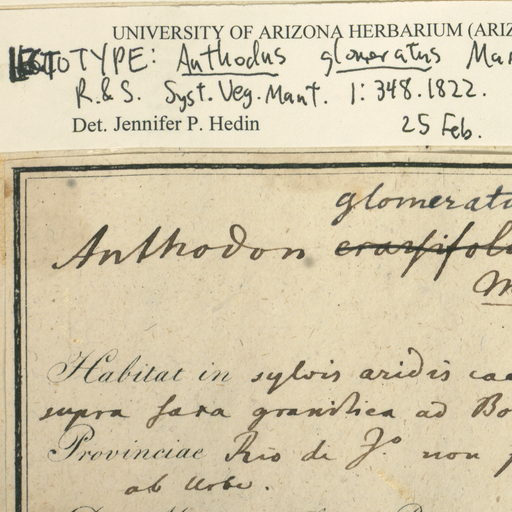 UNIVERSITY OF ARIZONA HERBARIUM (ARIZ
TYPE: Anthodus glomeratus Mar
R.&S. Syst. Veg. Mant. 1:348.1822.
Det. Jennifer P. Hedin 25 Feb.
glomeratu
Anthodon crassifoli
M
Habitat in sylvis aridis cae
supra saxa granitica ad Bo
Provinciae Rio de Jo non
ab Urbe.